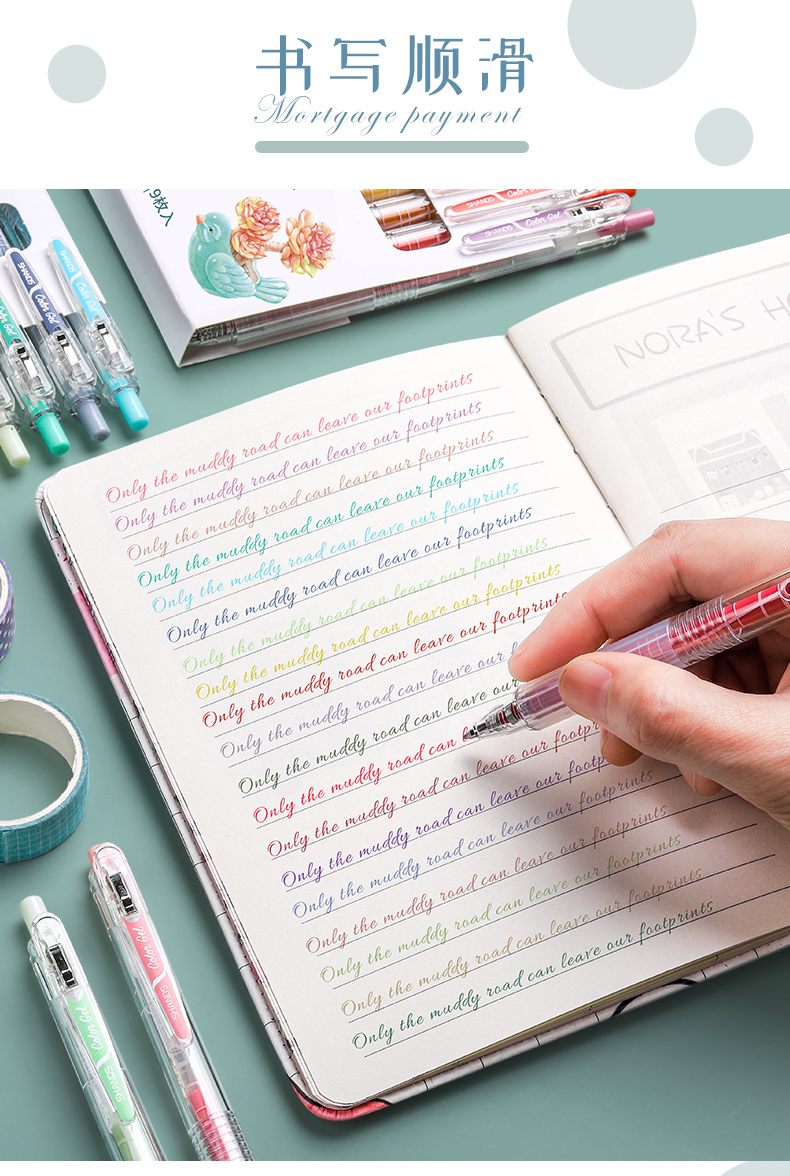 书写顺滑
Mortgage payment
9枚入
SHAKIS Color Gel
SHAKIS Color Gel
SHAKIS Color Gel
Color Gel
NORA'S
Only the muddy road can leave our footprints
Only the muddy road can leave our footprints
Only the muddy road can leave our footprints
Only the muddy road can leave our footprints
Only the muddy road can leave our footprints
Only the muddy road can leave our footprints
Only the muddy road can leave our footprints
Only the muddy road can leave our footprints
Only the muddy road can leave our footprints
Only the muddy road can leave our
Only the muddy road can leave our
Only the muddy road can
Only the muddy road can leave our footprints
Only the muddy road can leave our
Only the muddy road can leave our footprints
Only the muddy road can leave our footprints
Only the muddy road can leave our footprints
Only the muddy road can leave our footprints
Only the muddy road can leave our footprints
Color Gel SHAKIS
Color Gel SHAKIS